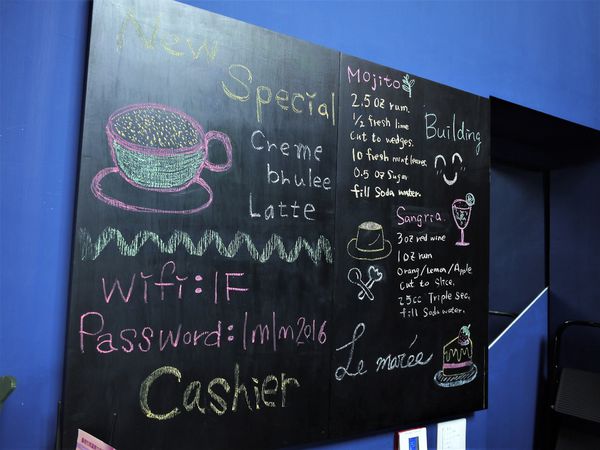 New
Special
Creme
bhulee
Latte
Wifi:IF
Password:lmlm2016
Cashier
Mojito
2.5 oz rum.
1/2 fresh lime
Cut to wedges.
10 fresh mint leaves.
0.5 oz Sugar
fill Soda water.
Building
Sangria.
3 oz red wine
1 oz rum
Orang/Lemon/Apple
Cut to slice.
25cc Triple Sec.
fill Soda water.
Le marée